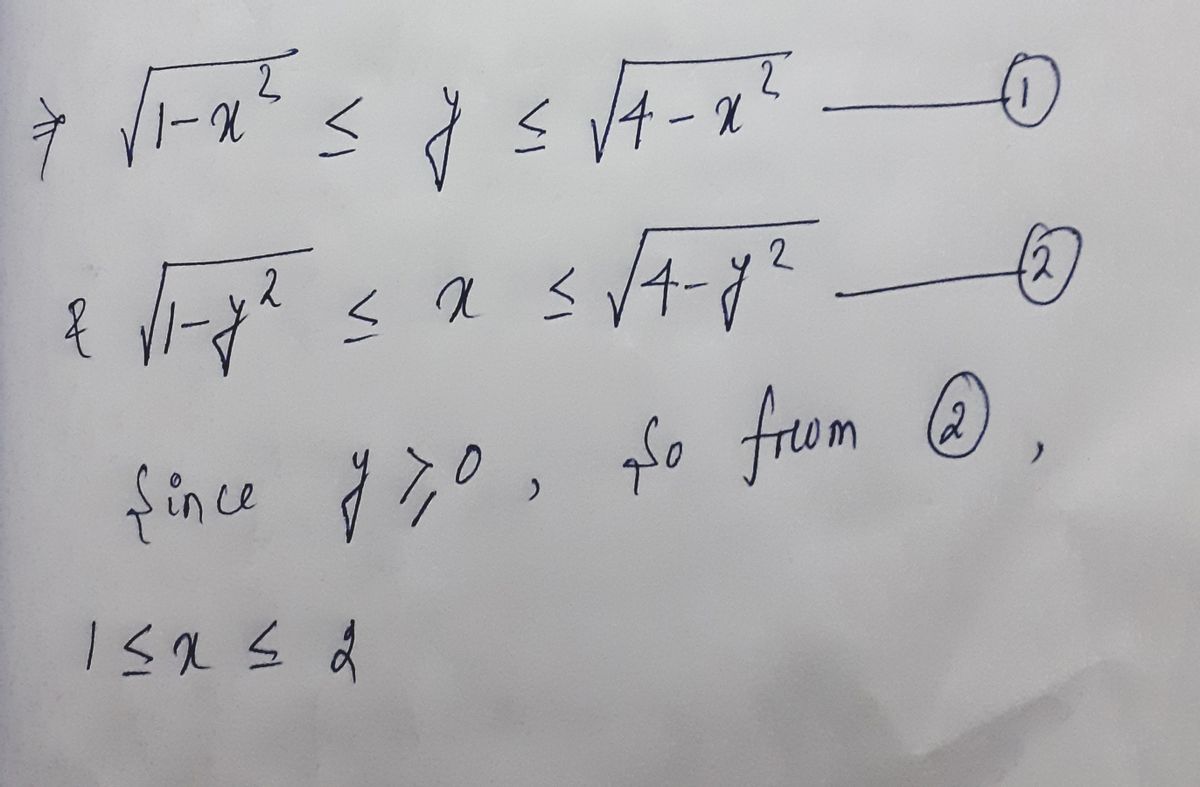 ⇒ √(1-x²) ≤ y ≤ √(4-x²) —— ①
& √(1-y²) ≤ x ≤ √(4-y²) —— ②
Since y ≥ 0, So from ②,
1 ≤ x ≤ 2